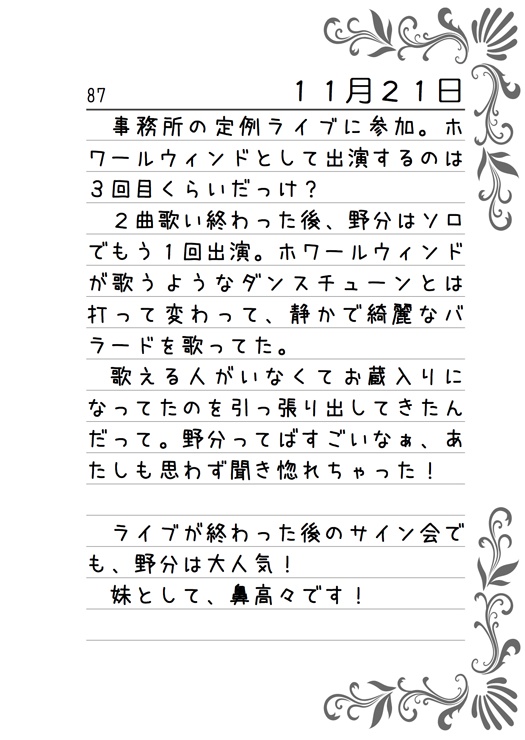 87
１１月２１日
　事務所の定例ライブに参加。ホ
ワールウィンドとして出演するのは
３回目くらいだっけ？
　２曲歌い終わった後、野分はソロ
でもう１回出演。ホワールウィンド
が歌うようなダンスチューンとは
打って変わって、静かで綺麗なバ
ラードを歌ってた。
　歌える人がいなくてお蔵入りに
なってたのを引っ張り出してきたん
だって。野分ってばすごいなぁ、あ
たしも思わず聞き惚れちゃった！
　ライブが終わった後のサイン会で
も、野分は大人気！
　妹として、鼻高々です！